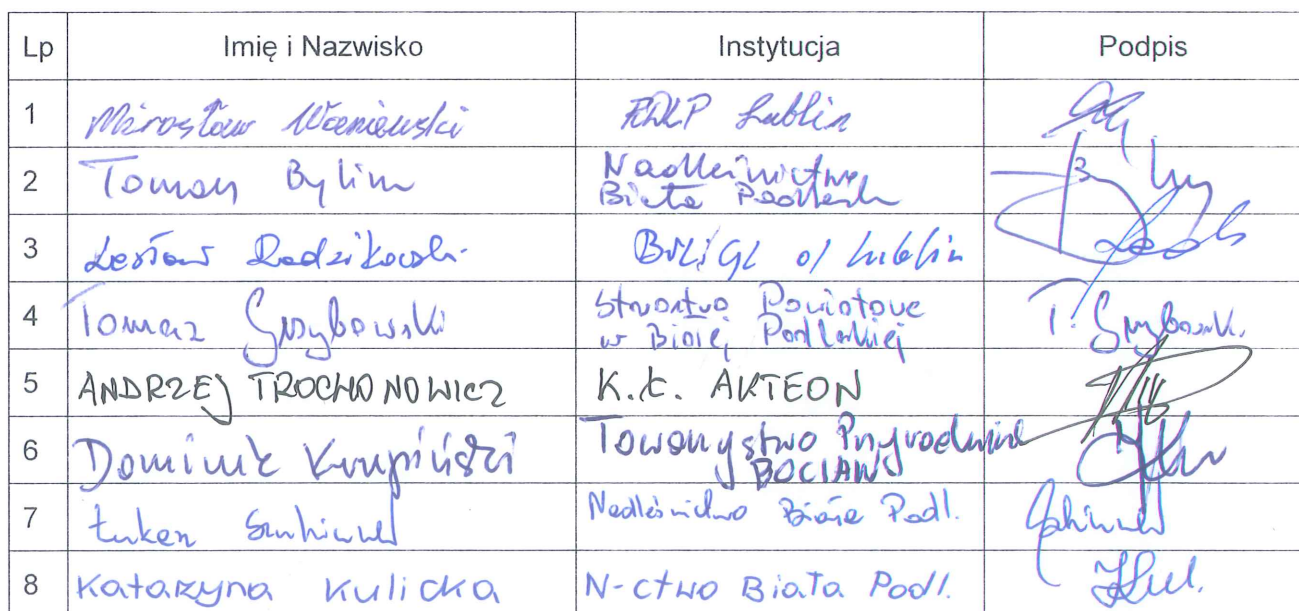 Lp Imię i Nazwisko Instytucja Podpis
1 Mirosław Waniewski RDLP Lublin
2 Tomasz Bylina Nadleśnictwo
Biała Podlaska
3 Lesław Radzikowski BULiGL o/ Lublin
4 Tomasz Grzybowski Starostwo Powiatowe T. Grzybowski
w Białej Podlaskiej
5 ANDRZEJ TROCHONOWICZ K.Ł. AKTEON
6 Dominik Krupiński Towarzystwo Przyrodnicze
BOCIAN
7 Łukasz Nadleśnictwo Biała Podl.
8 Katarzyna Kulicka N-ctwo Biała Podl.